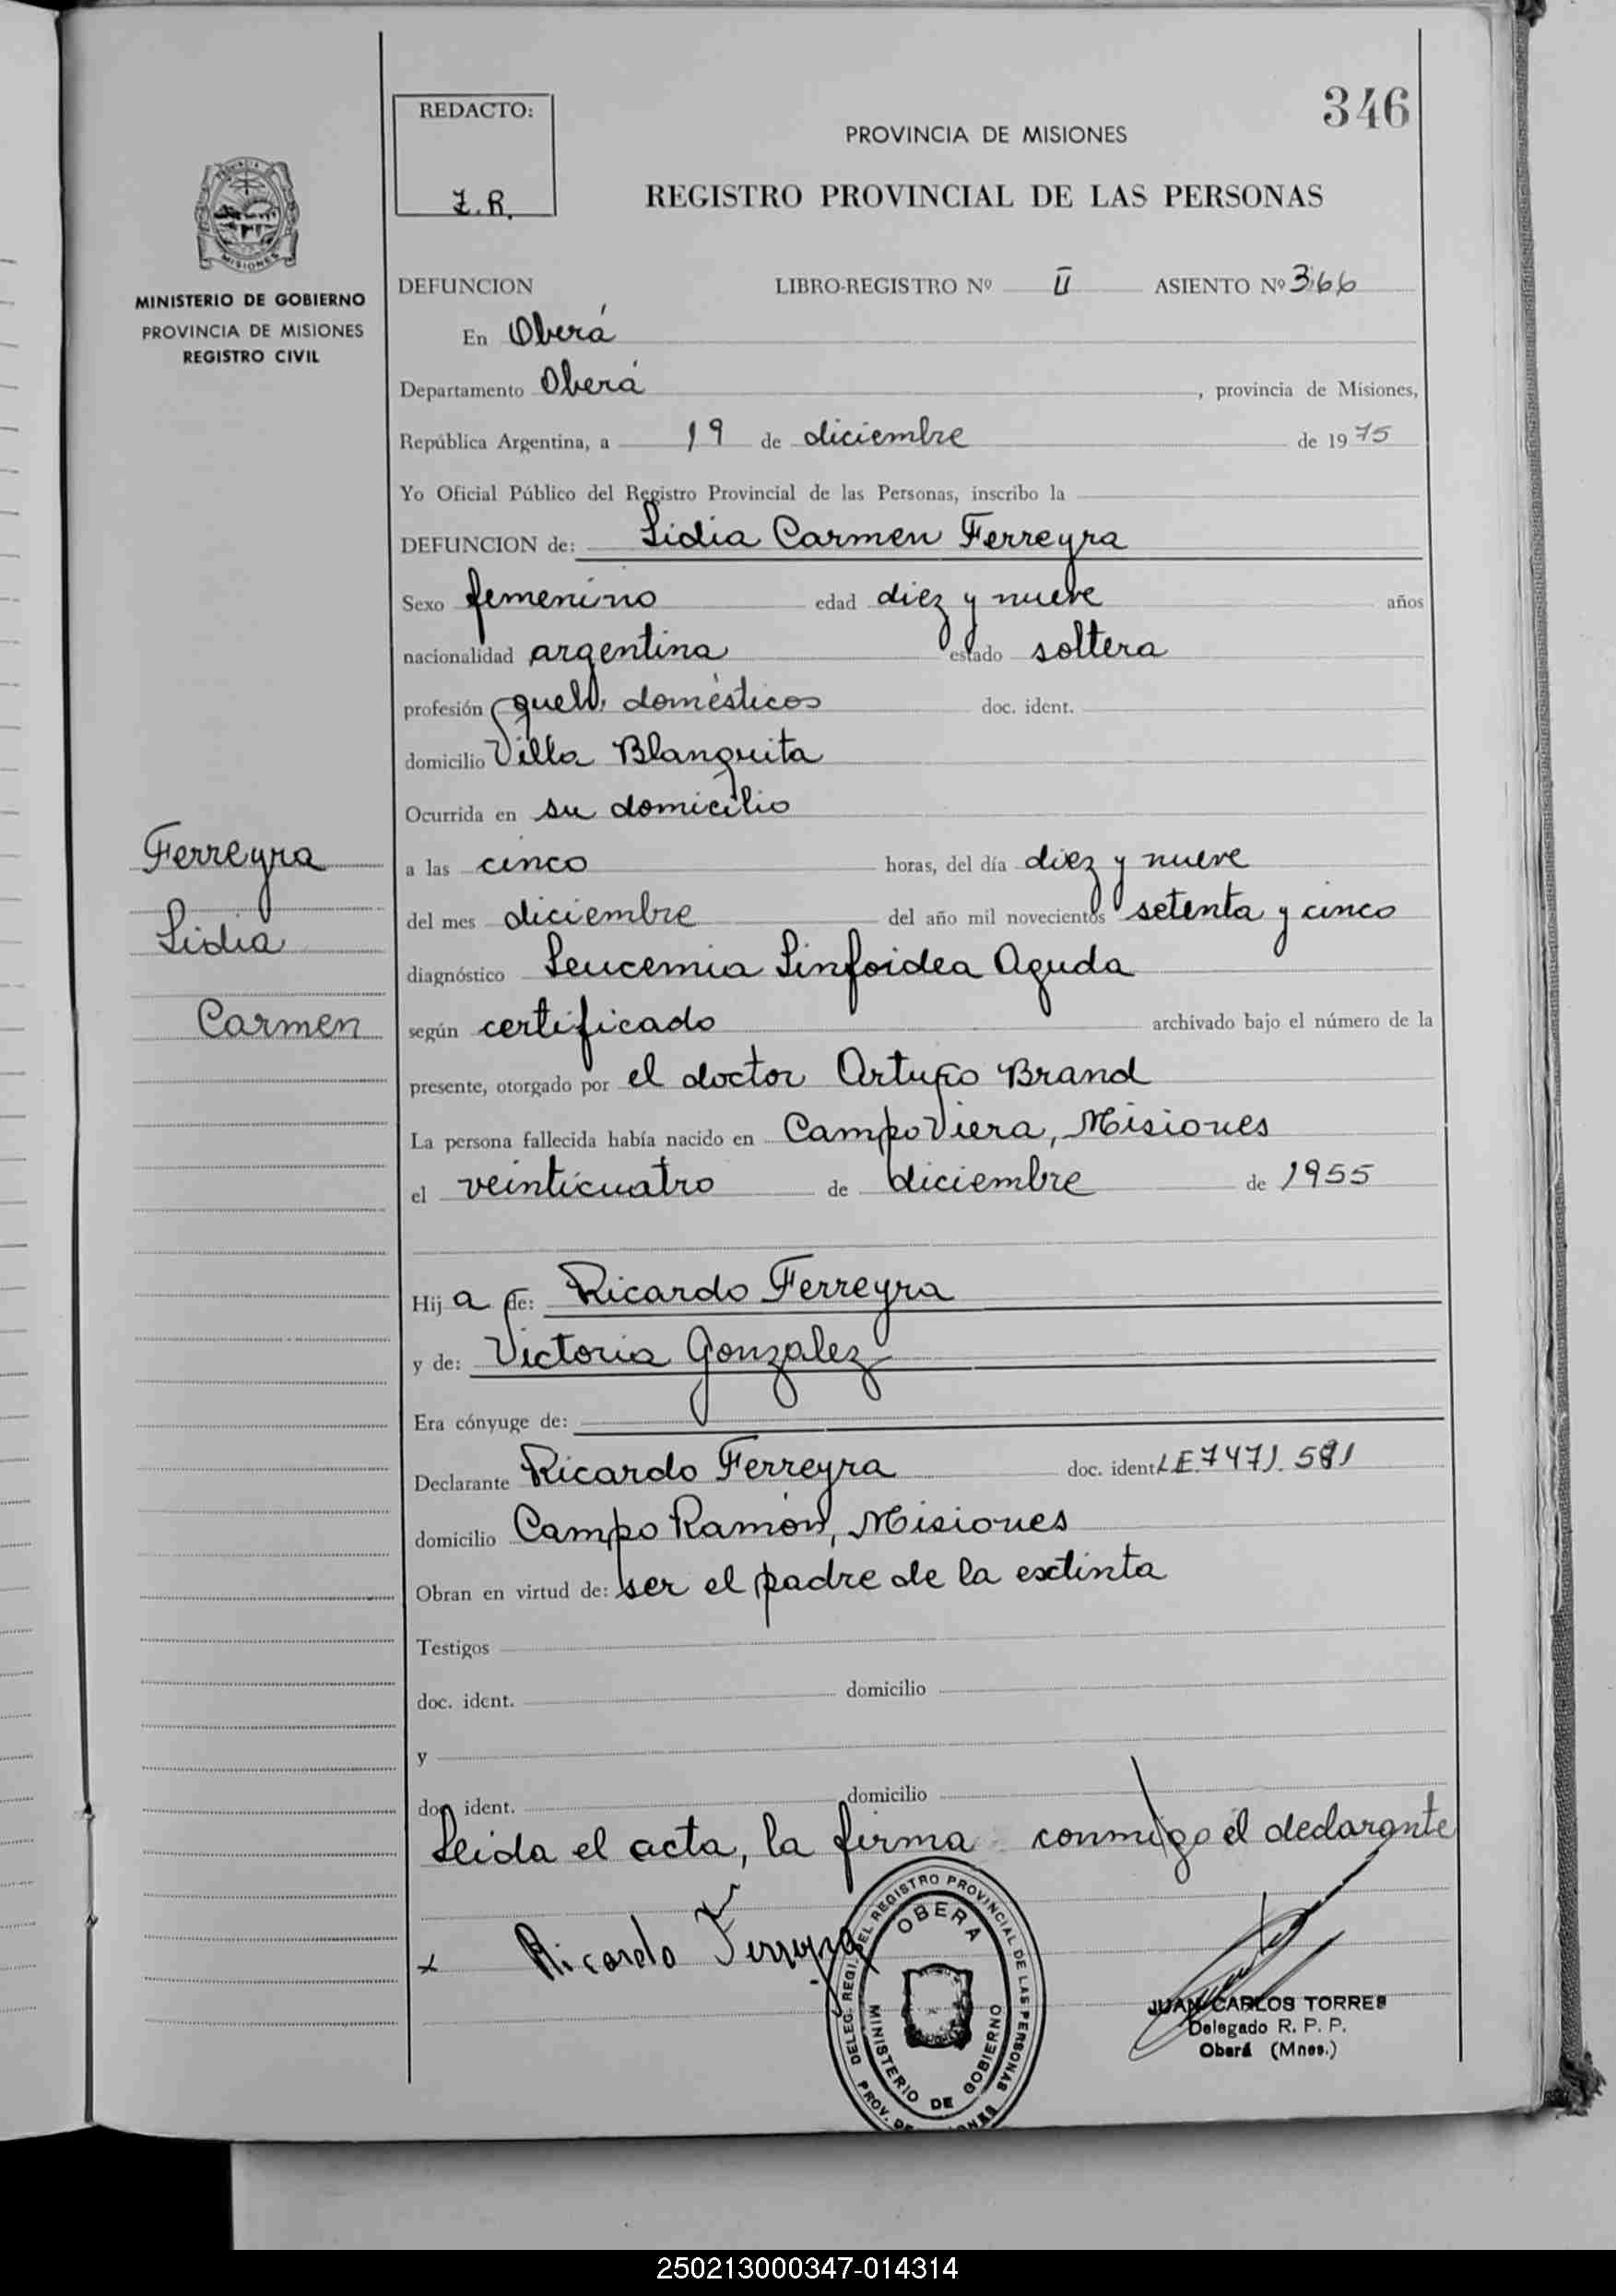 346
REDACTO:
Z.R.
PROVINCIA DE MISIONES
REGISTRO PROVINCIAL DE LAS PERSONAS
MISIONES
MINISTERIO DE GOBIERNO
PROVINCIA DE MISIONES
REGISTRO CIVIL
DEFUNCION LIBRO-REGISTRO Nº II ASIENTO Nº 366
En Oberá
Departamento Oberá , provincia de Misiones,
República Argentina, a 19 de diciembre de 1975
Yo Oficial Público del Registro Provincial de las Personas, inscribo la
DEFUNCION de: Lidia Carmen Ferreyra
Sexo femenino edad diez y nueve años
nacionalidad argentina estado soltera
profesión domésticos doc. ident.
domicilio Villa Blanquita
Ocurrida en su domicilio
Ferreyra
Lidia
Carmen
a las cinco horas, del día diez y nueve
del mes diciembre del año mil novecientos setenta y cinco
diagnóstico Leucemia Linfoidea Aguda
según certificado archivado bajo el número de la
presente, otorgado por el doctor Arturo Brand
La persona fallecida había nacido en Campo Viera, Misiones
el veinticuatro de diciembre de 1955
Hija de: Ricardo Ferreyra
y de: Victoria Gonzalez
Era cónyuge de:
Declarante Ricardo Ferreyra doc. ident. L.E. 7471.581
domicilio Campo Ramón, Misiones
Obran en virtud de: ser el padre de la extinta
Testigos
doc. ident. domicilio
y
doc. ident. domicilio
Leida el acta, la firma conmigo el declarante
x Ricardo Ferreyra
DELEG. REGI. DEL REGISTRO PROVINCIAL DE LAS PERSONAS
OBERA
MINISTERIO DE GOBIERNO
PROV. DE
JUAN CARLOS TORRES
Delegado R. P. P.
Oberá (Mnes.)
250213000347-014314